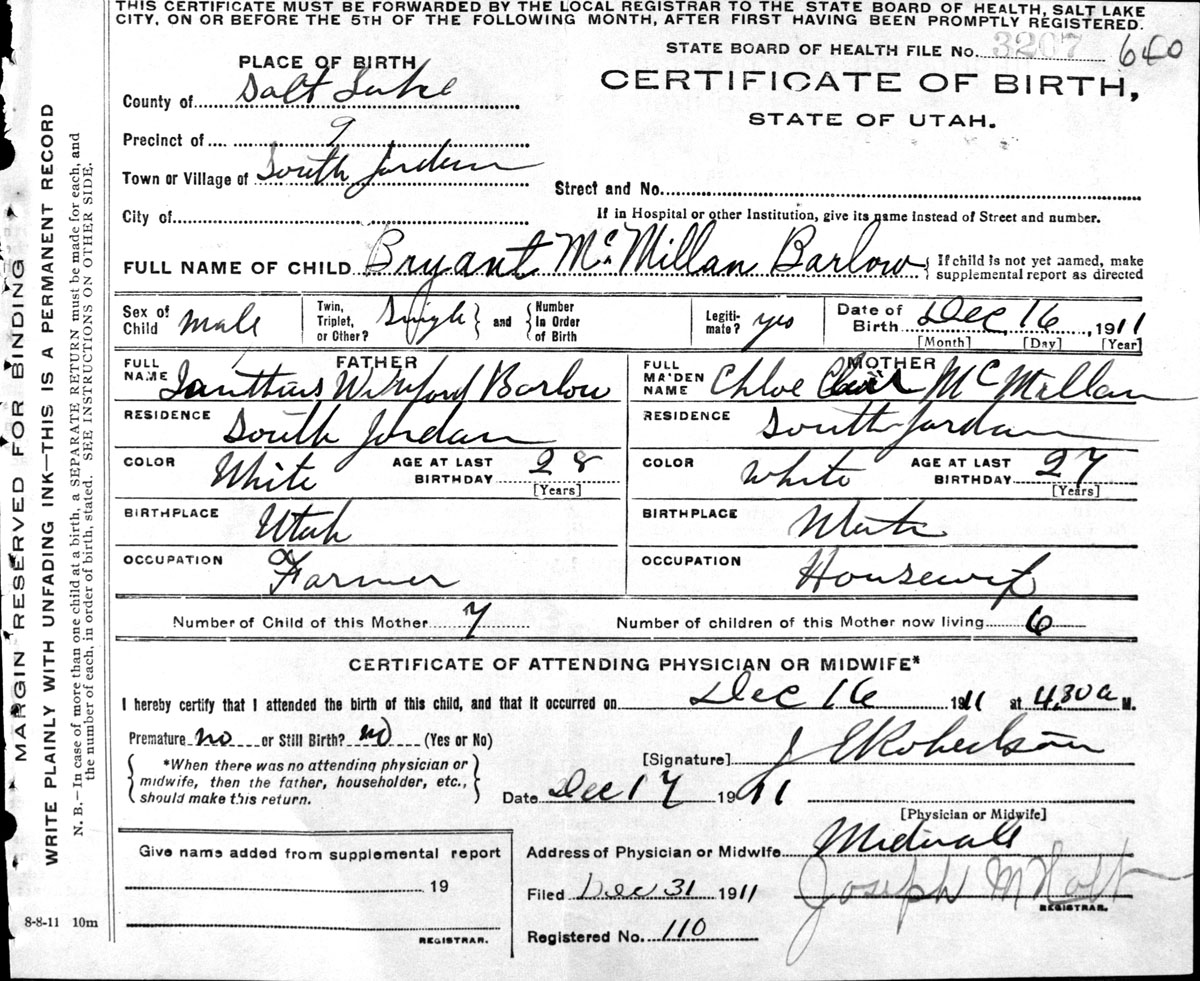 THIS CERTIFICATE MUST BE FORWARDED BY THE LOCAL REGISTRAR TO THE STATE BOARD OF HEALTH, SALT LAKE
CITY, ON OR BEFORE THE 5TH OF THE FOLLOWING MONTH, AFTER FIRST HAVING BEEN PROMPTLY REGISTERED.
STATE BOARD OF HEALTH FILE No. 3207 640
CERTIFICATE OF BIRTH,
STATE OF UTAH.
PLACE OF BIRTH
County of Salt Lake
Precinct of 9
Town or Village of South Jordan
Street and No.
City of
If in Hospital or other Institution, give its name instead of Street and number.
FULL NAME OF CHILD Bryant McMillan Barlow { If child is not yet named, make
supplemental report as directed
Sex of
Child male
Twin,
Triplet,
or Other? Single } and { Number
in Order
of Birth
Legiti-
mate? yes
Date of
Birth Dec 16, 1911
[Month] [Day] [Year]
FATHER
FULL
NAME Ianthus Winford Barlow
MOTHER
FULL
MAIDEN
NAME Chloe McMillan
RESIDENCE South Jordan
RESIDENCE South Jordan
COLOR White AGE AT LAST
BIRTHDAY 28
[Years]
COLOR White AGE AT LAST
BIRTHDAY 27
[Years]
BIRTHPLACE Utah
BIRTHPLACE Utah
OCCUPATION Farmer
OCCUPATION Housewif
Number of Child of this Mother 7 Number of children of this Mother now living 6
CERTIFICATE OF ATTENDING PHYSICIAN OR MIDWIFE*
I hereby certify that I attended the birth of this child, and that it occurred on Dec 16 1911 at 4,30 a M.
Premature no or Still Birth? no (Yes or No)
[Signature] J E Robertson
{ *When there was no attending physician or
midwife, then the father, householder, etc.,
should make this return. }
Date Dec 17 1911
[Physician or Midwife]
Give name added from supplemental report
19
REGISTRAR.
Address of Physician or Midwife Midvale
Filed Dec 31 1911 Joseph M Holt
REGISTRAR.
Registered No. 110
8-8-11 10m
MARGIN RESERVED FOR BINDING
WRITE PLAINLY WITH UNFADING INK—THIS IS A PERMANENT RECORD
N. B.—In case of more than one child at a birth, a SEPARATE RETURN must be made for each, and
the number of each, in order of birth, stated. SEE INSTRUCTIONS ON OTHER SIDE.